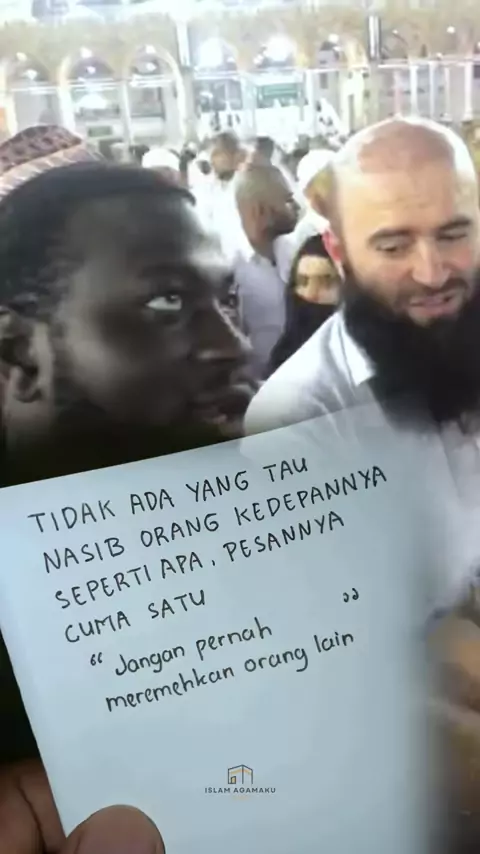 TIDAK ADA YANG TAU
NASIB ORANG KEDEPANNYA
SEPERTI APA, PESANNYA
CUMA SATU
“ Jangan pernah ”
meremehkan orang lain
ISLAM AGAMAKU